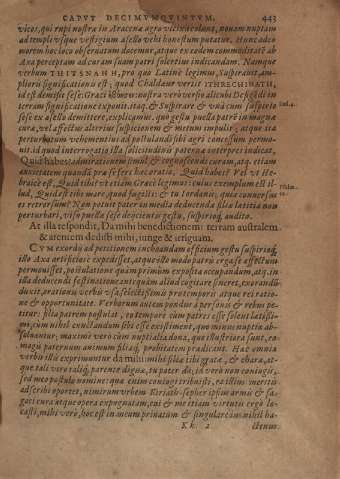 CAPVT DECIMVMQVINTVM. 443
vicos, qui rupi nostra in Aracena agro vicini colunt, novem nuptam
ad templi vsque vestigium asello vehi honestum putatur. Hunc ad
morem hoc loco observatum docemur, atque ex eodem commoditatē ab
Axa perceptam ad curam suam patri solertius indicandam. Namque
verbum THITSNAH, pro quo Latinè legimus, Suspirauit, am-
pliorū significationis est; quod Chaldæus vertit ITHRECHINATH,
id est demisit se se: Græci
terram significatione exponit. itaq; & Suspirare & vnà cum suspirio
se se ex asello demittere, explicamus. quo gestu puella patrē in magnā
cura, vel affectus alterius suspicionem & metum impulit; atque ita
perturbatum vehementius ad postulandi sibi agri concessum permo-
uit. id quod interrogatio illa sollicitudinis paternæ interpres indicat,
Quid habes? admirationem simul, & cognoscendi curam, atq; etiam
anxietatem quandā præ se fert hæc oratio, Quid habes? Vel vt He-
braicè est, Quid tibi? vt etiam Græci legimus: cuius exemplum est il-
lud, Quid est tibi mare, quod fugisti: & tu Iordanis, quia conuersus
es retrorsum? Non potuit pater in media deducenda filiæ lætitia non
perturbari, viso puellæ sese deijcientis gestu, suspirioq; audito.
At illa respondit, Da mihi benedictionem: terram australem
& arentem dedisti mihi, iunge & irriguam.
CVM exordij ad petitionem inchoandam officium gestu suspirioq;
illo Axa artificiosè expedisset, atque isto modo patris erga se affectum
permouisset, postulatione quàm primùm exposita occupandum, atq; in
illa deducendi festinatione antequam aliud cogitare sineret, exorandū
duxit, orationis verbis vsa selectissimis pro temporis atque rei ratio-
ne & opportunitate. Verborum autem pondus à personis & rebus pe-
titur: filia patrem postulat, eo tempore cùm patres esse solent lætissi-
mi, cùm nihil cunctandum sibi esse existiment, quo minus nuptiæ ab-
soluantur; maximè verò cùm nuptialia dona, quo illustriora sunt, eo
magis paternum animum filiæq; probitatem prædicant. Hæc omnia
verbis illis exprimuntur da mihi: mihi filiæ tibi gratæ, & charæ, at-
que tali viro taliq; parente dignæ, tu pater da; in verò non coniugis,
sed meo postulo nomine: quæ enim coniugi tribuisti, ea illius meritis
adscribi oportet, nimirum vrbem Kiriath-sepher ipsius armis & sa-
gaci cura atque opera expugnatam, cui & me etiam virtutis ergo lo-
casti, mihi verò, hoc est in meum priuatum & singularem nihil ha-
Kk 2 ctenus